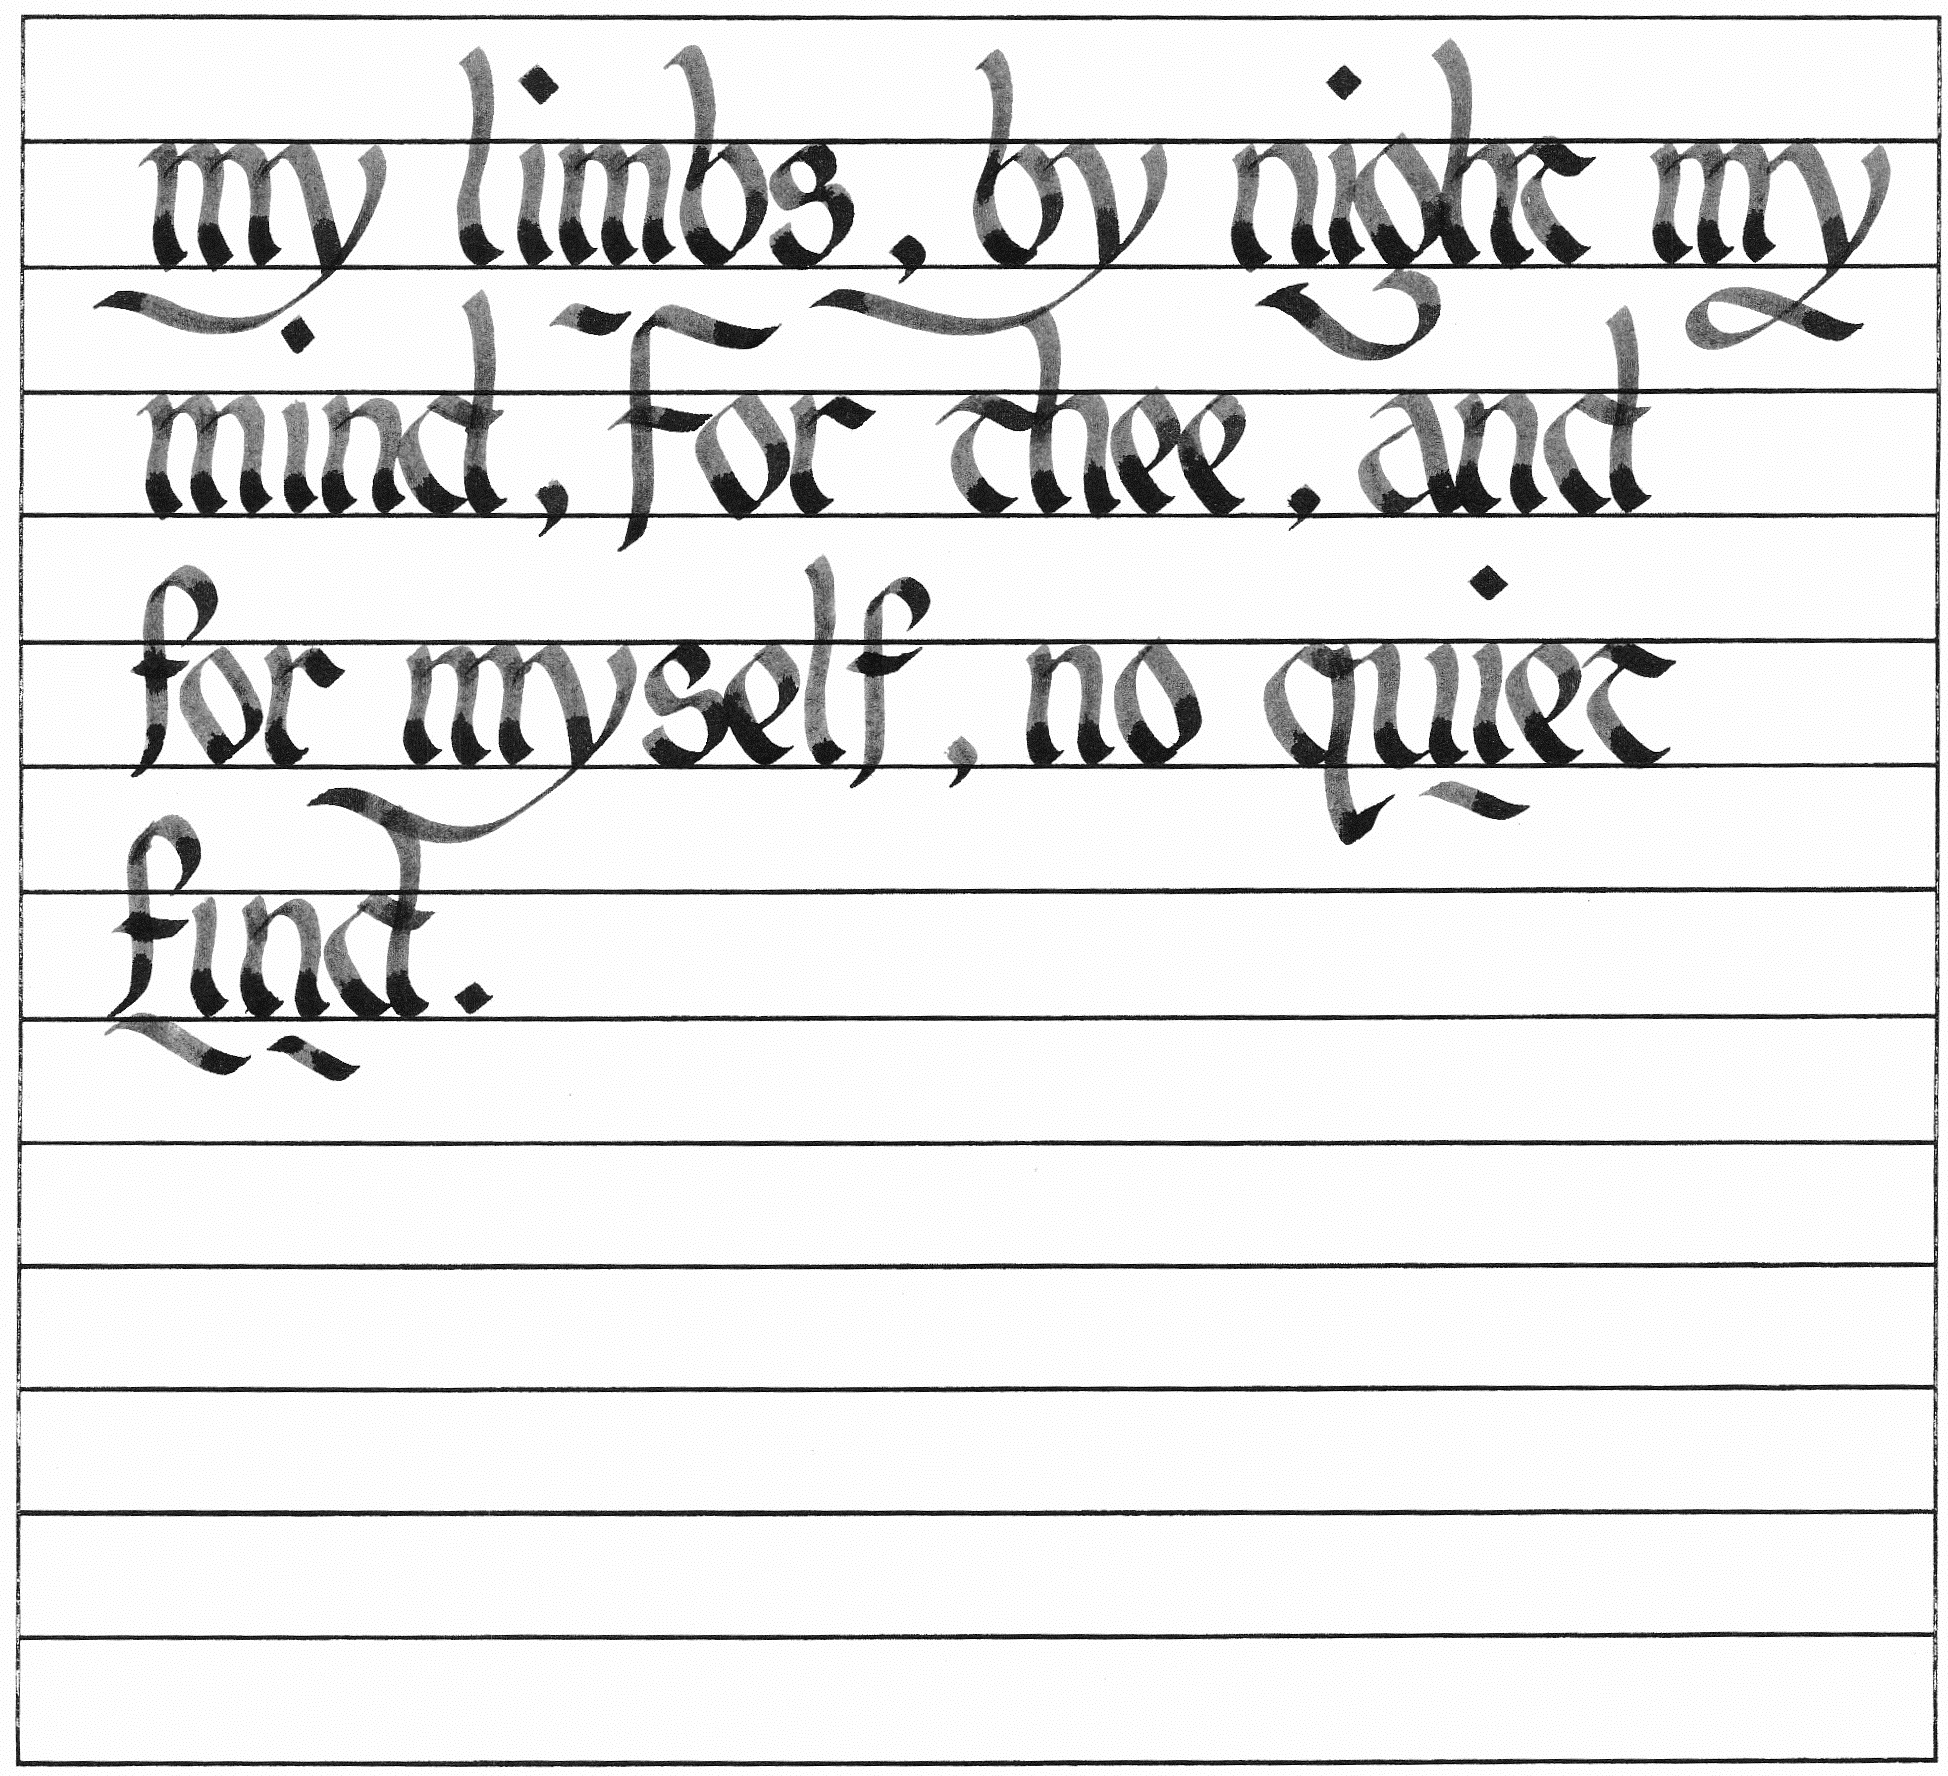 my limbs, by night my
mind, For thee, and
for myself, no quiet
find.